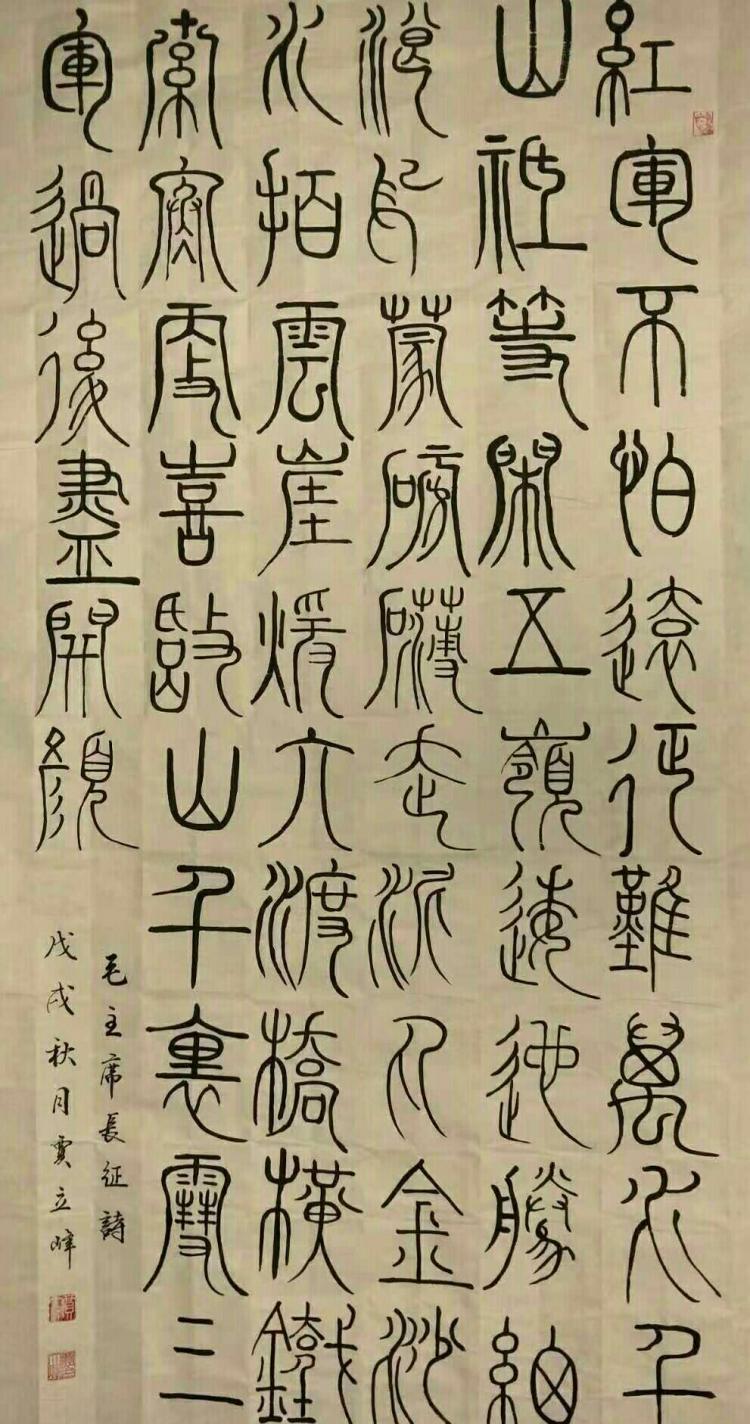 紅軍不怕遠征難萬水千
山祗等閑五嶺逶迤騰細
浪烏蒙磅礴走泥丸金沙
水拍雲崖煖大渡橋橫鐵
索寒更喜岷山千裏雪三
軍過後盡開顏
毛主席長征詩
戊戌秋月賈立